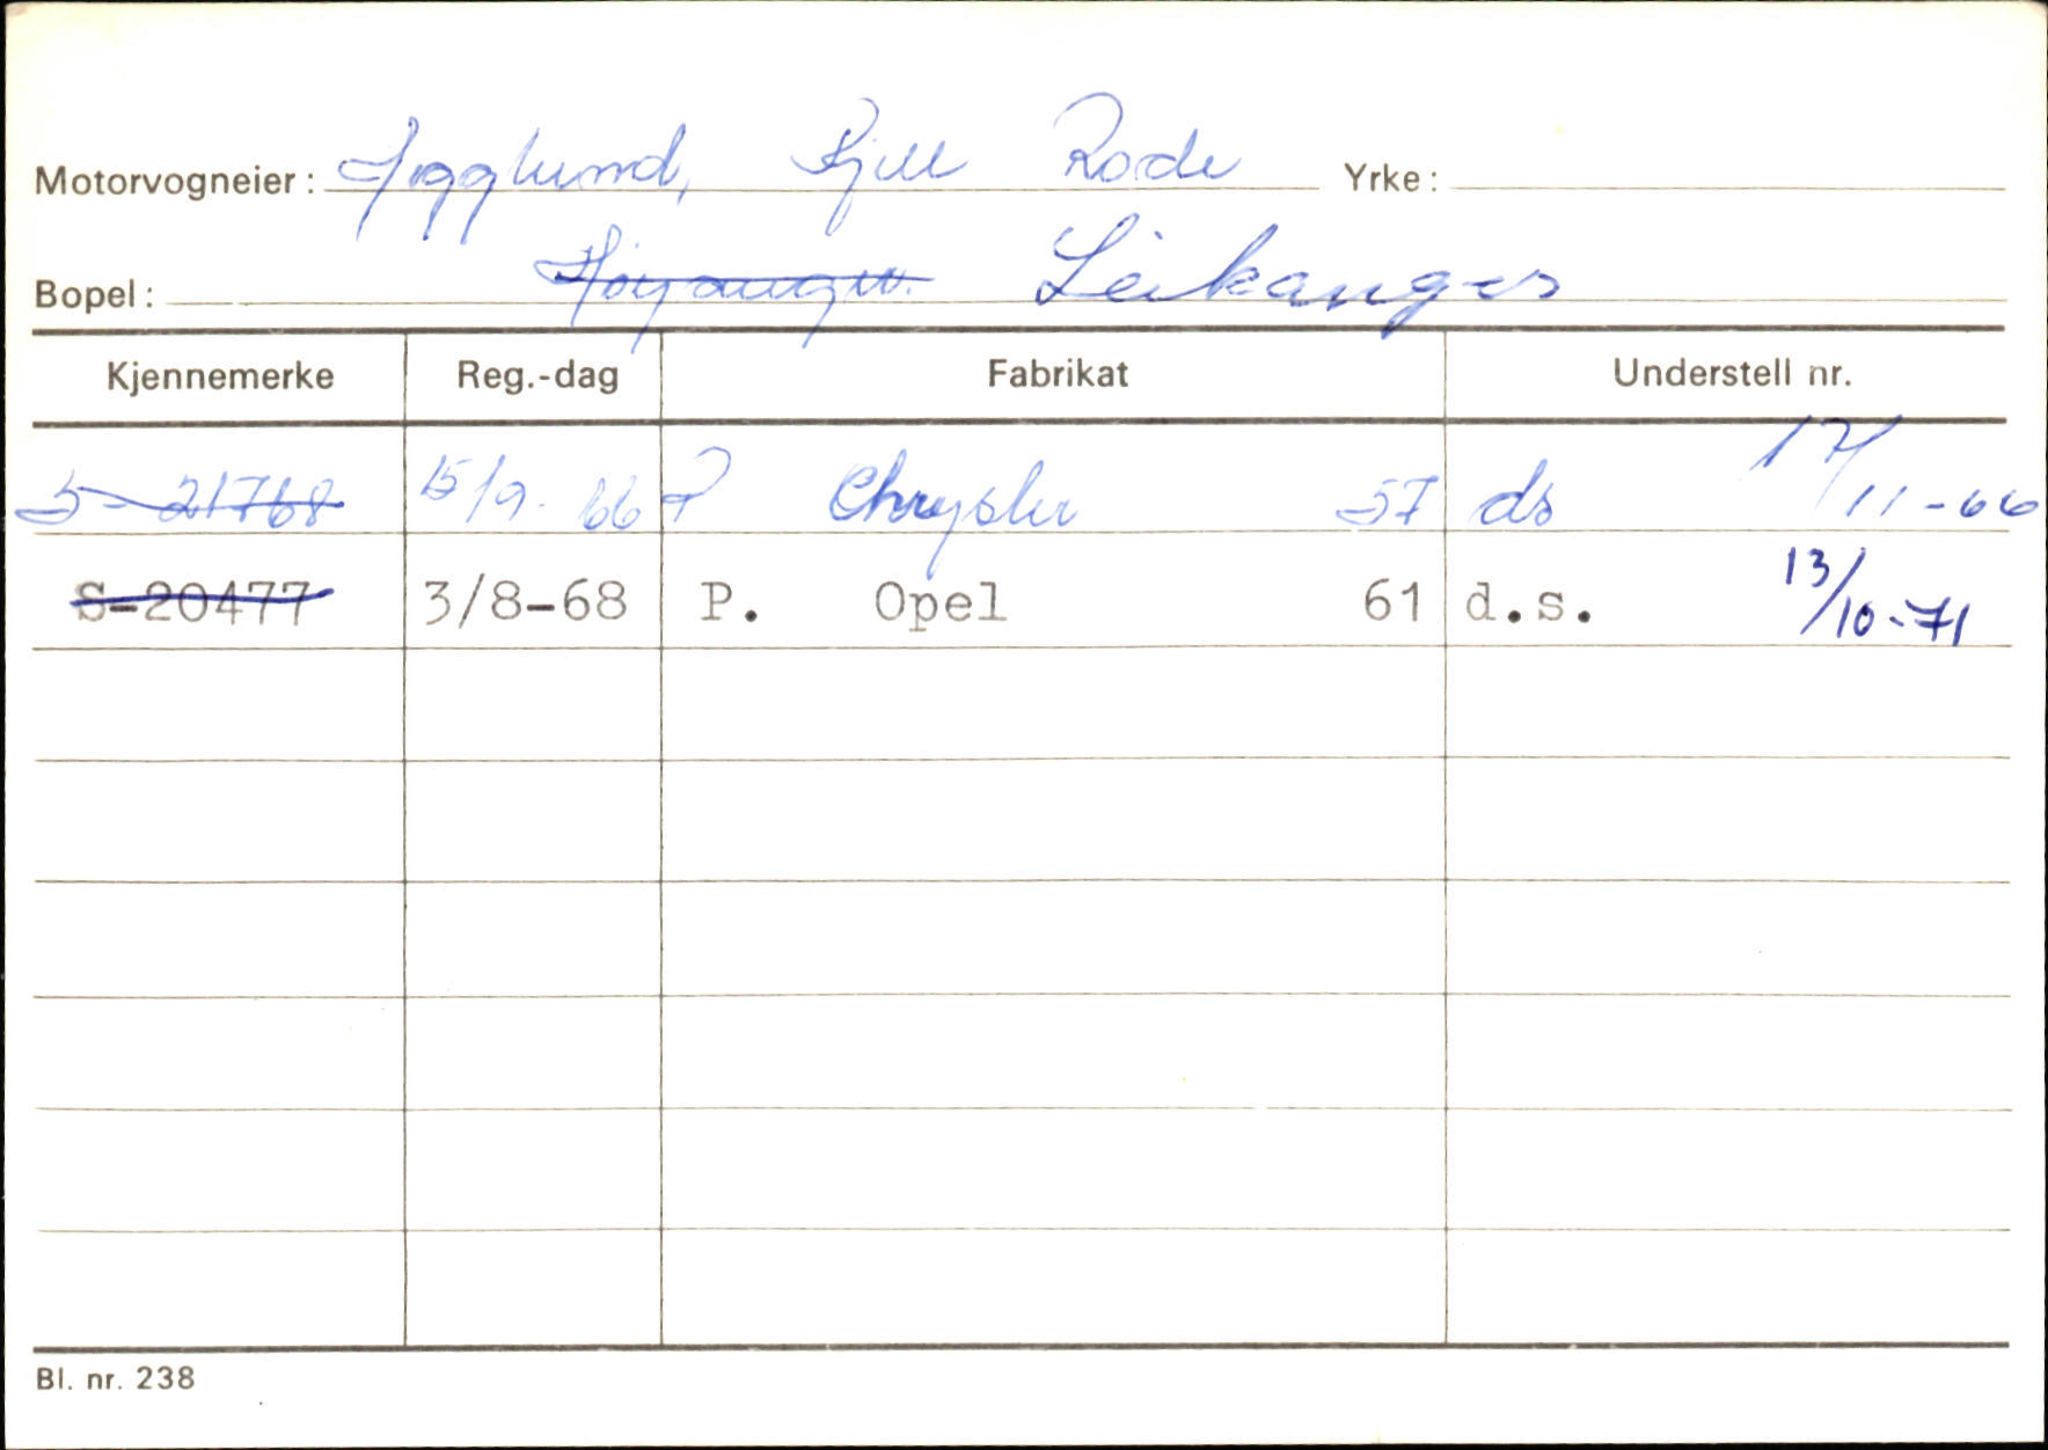 Motorvogneier: Hegglund, Kjell Rode Yrke:
Bopel: Høyanger. Leikanger
Kjennemerke Reg.-dag Fabrikat Understell nr.
S-21768 15/9-66 P Chrysler 57 ds 17/11-66
S-20477 3/8-68 P. Opel 61 d.s. 13/10-71
Bl. nr. 238